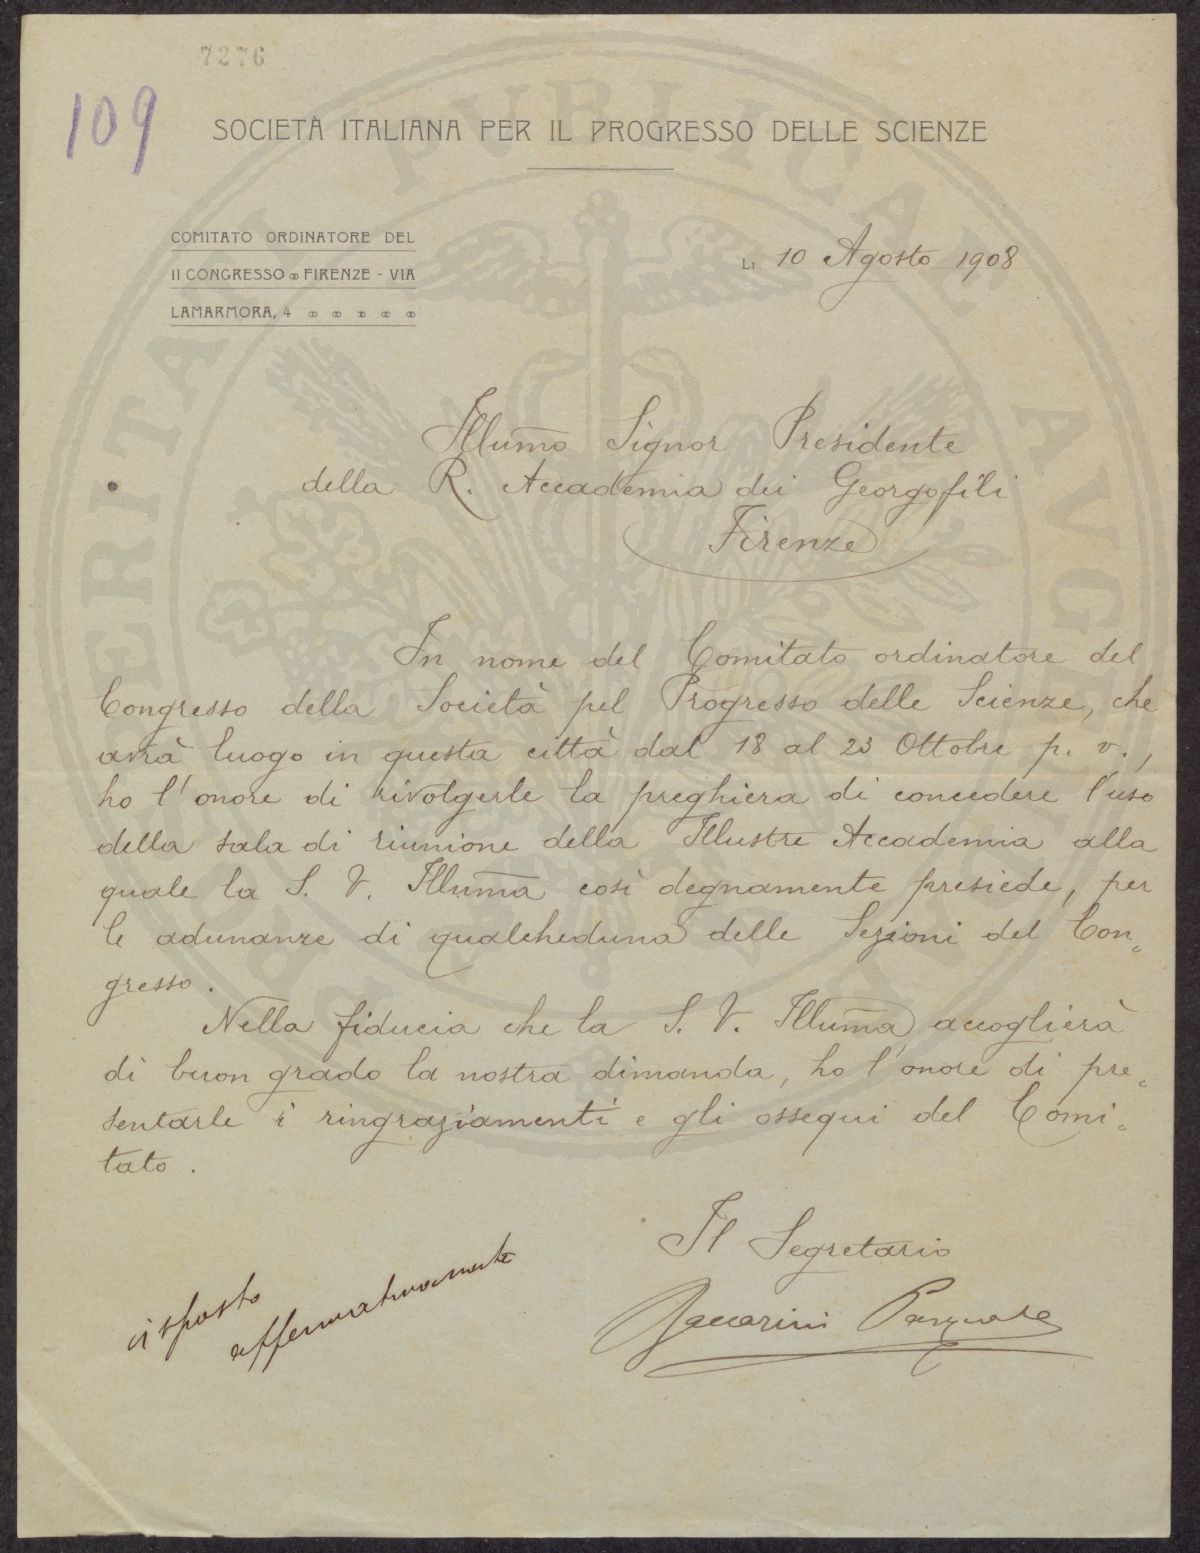 7276
109
SOCIETÀ ITALIANA PER IL PROGRESSO DELLE SCIENZE
COMITATO ORDINATORE DEL
II CONGRESSO FIRENZE - VIA
LAMARMORA, 4
LI 10 Agosto 1908
Illumo Signor Presidente
della R. Accademia dei Georgofili
Firenze
In nome del Comitato ordinatore del
Congresso della Società pel Progresso delle Scienze, che
avrà luogo in questa città dal 18 al 23 Ottobre p. v.,
ho l'onore di rivolgerle la preghiera di concedere l'uso
della sala di riunione della Illustre Accademia alla
quale la S. V. Illuma così degnamente presiede, per
le adunanze di qualcheduna delle Sezioni del Con-
gresso.
Nella fiducia che la S. V. Illuma accoglierà
di buon grado la nostra dimanda, ho l'onore di pre-
sentarle i ringraziamenti e gli ossequi del Comi-
tato.
Il Segretario
Pasquale
risposto
affermativamente